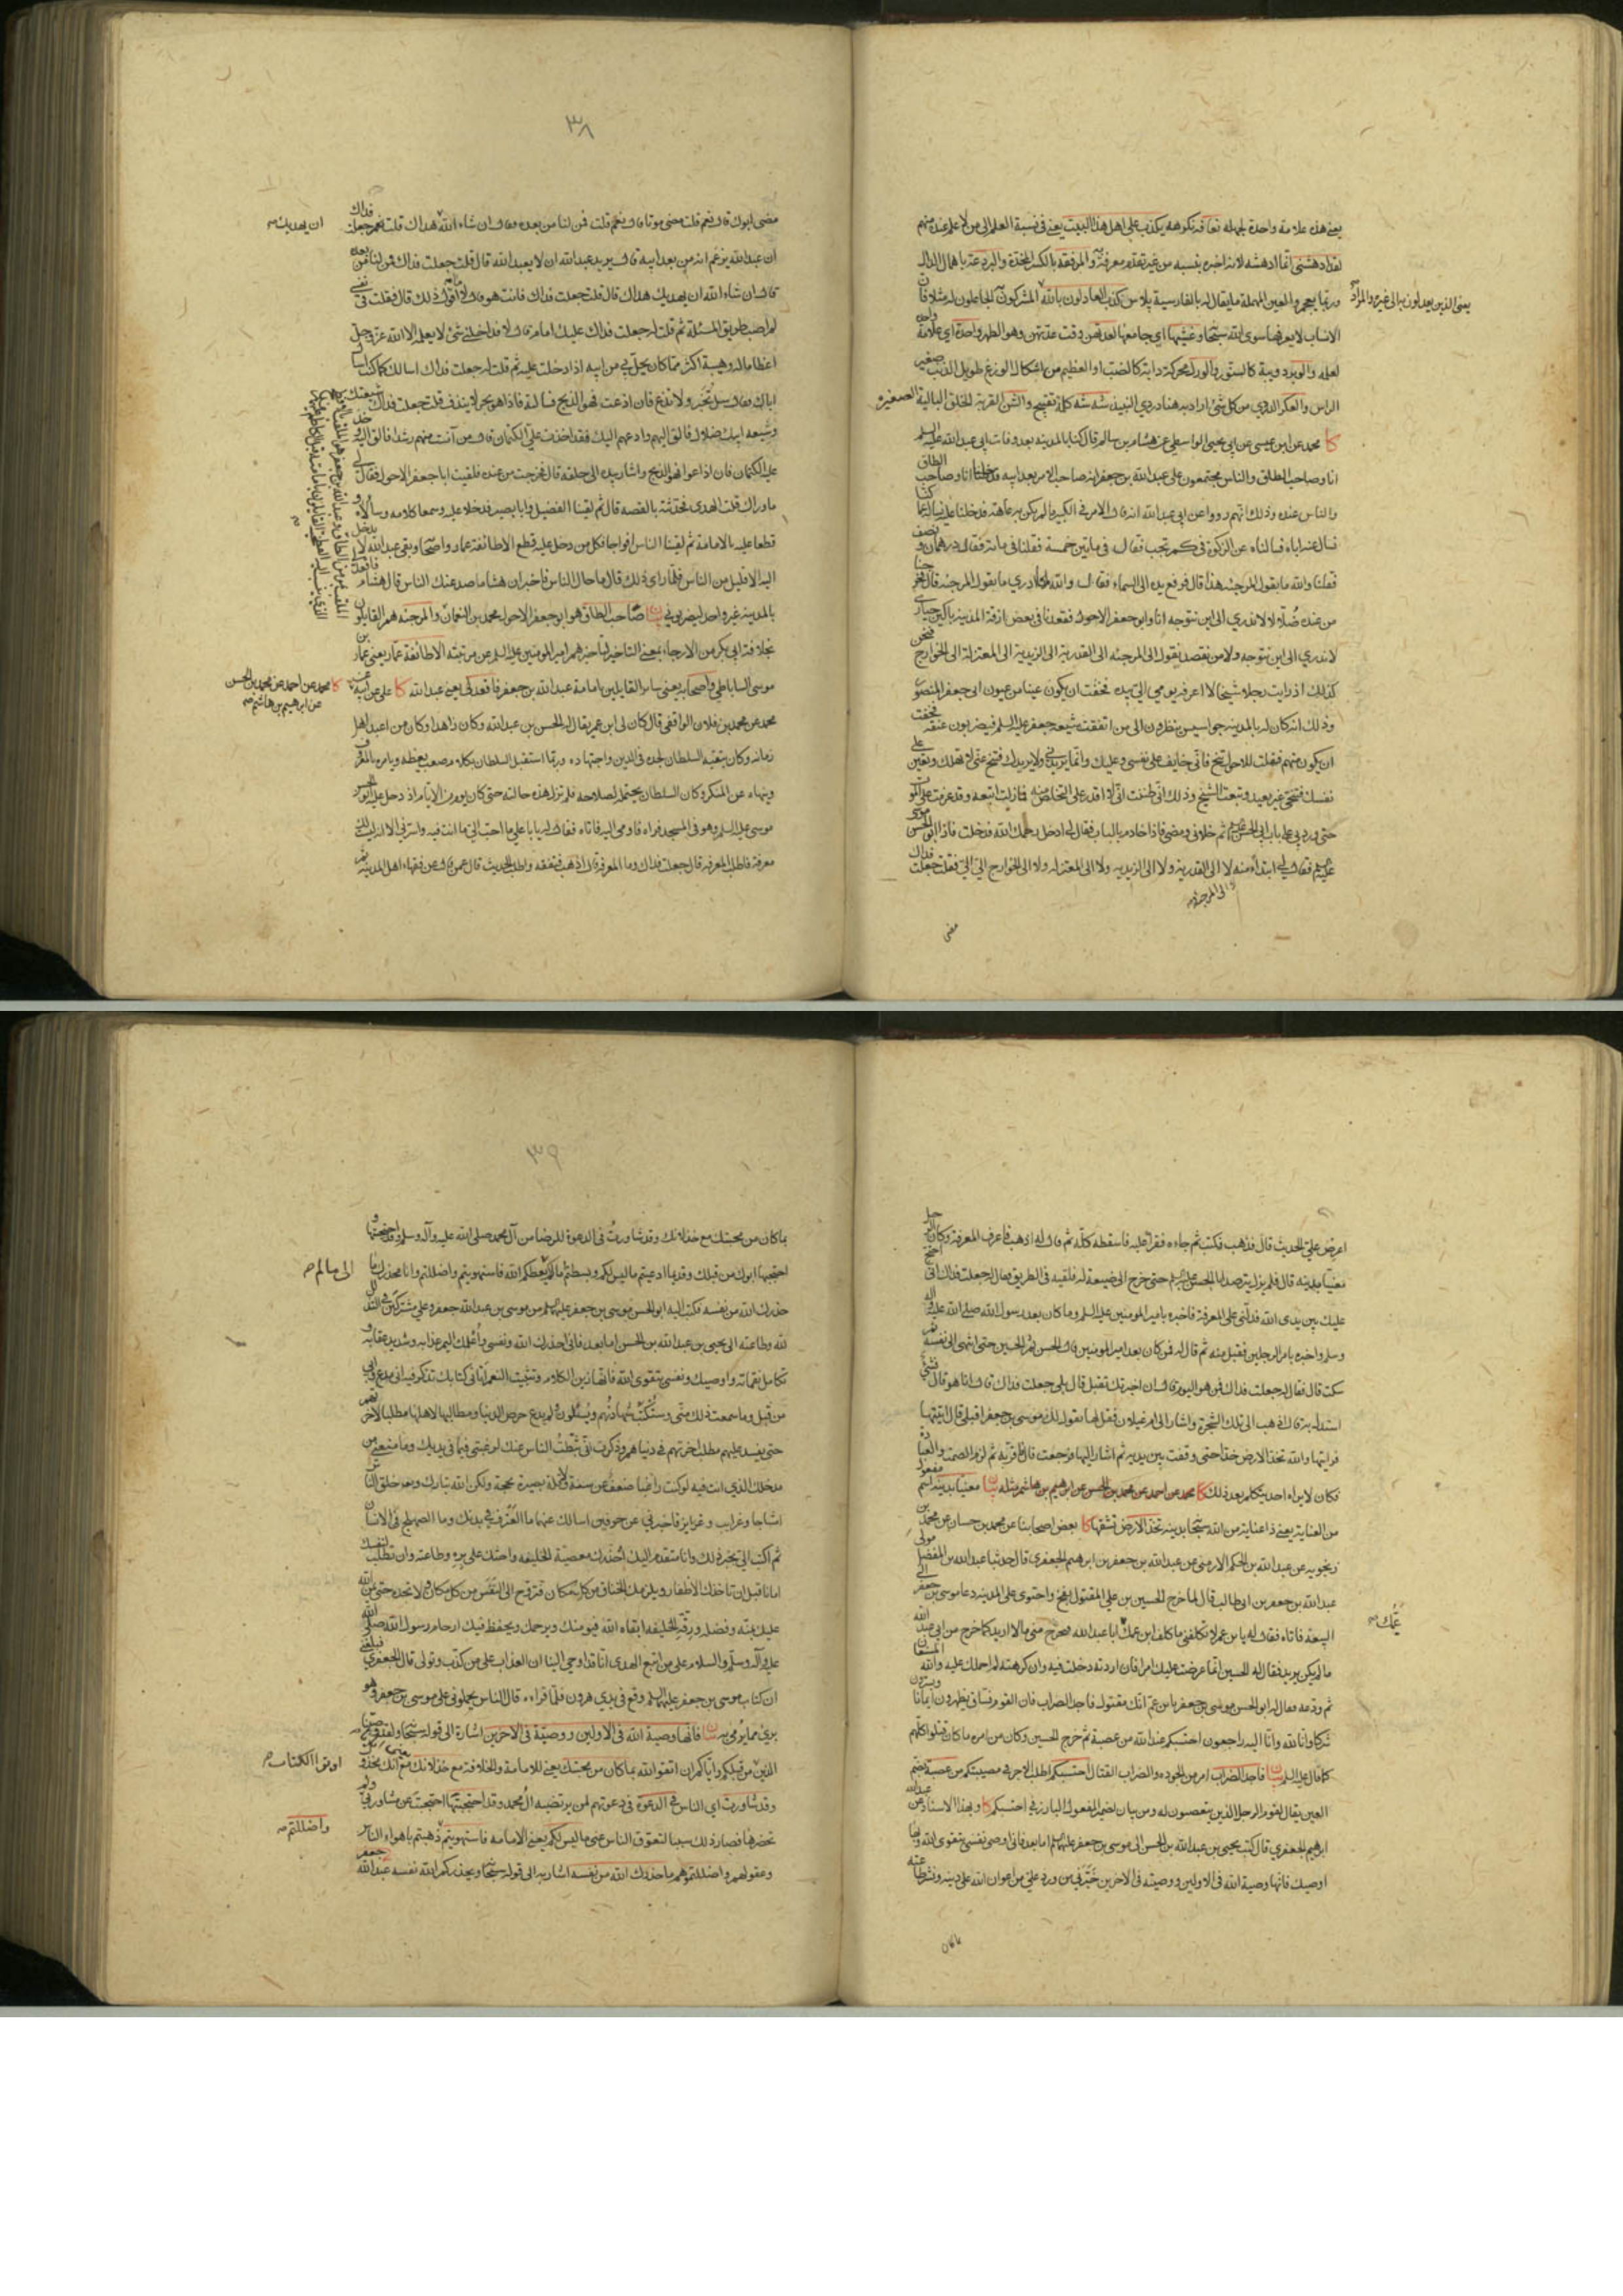 يعني هذه علامة واحدة لجهله تعافه تكرهه يكذب على اهل هذا البيت يعني في نسبة العلم الى من لا علم عنده منهم
لقد ادهشتني انما ادهشه لانه اخبره بنسبه من غير تقدم معرفة والمرفقه بالكسر المخدة والبردعة باهمال الدال
وربما يعجم والعين المهملة ما يقال له بالفارسية پلاس كذب العادلون بالله المشركون الجاعلون له مثلا فان
يعني الذين يعدلون به الى غيره والمراد
الانساب لا يعرفها سوى الله
لعله والوبر دويبة كالسنور والورك محركة دابة كالضب او العظيم من اشكال الوزغ طويل الذنب صغير
الراس والعكر الدردي من كل شئ اراد به هنا دردي النبيذ شه شه كلمة تقبيح والشن القربة الخلق البالية الصغيرة
كا محمد عن ابن عيسى عن ابي يحيى الواسطي عن هشام بن سالم قال كنا بالمدينة بعد وفات ابي عبد الله عليه السلم
انا وصاحب الطاق والناس مجتمعون على عبد الله بن جعفر انه صاحب الامر بعد ابيه فدخلنا عليه انا وصاحب الطاق
والناس عنده وذلك انهم رووا عن ابي عبد الله انه قال الامر في الكبير ما لم يكن به عاهة فدخلنا عليه نساله عما كنا
نسال عنه اباه فسالناه عن الزكوة في كم تجب فقال في مائتين خمسة فقلنا في مائة فقال درهمان ونصف
فقلنا والله ما يقول المرجئه هذا قال فرفع يده الى السماء فقال والله ما ادري ما يقول المرجئه قال فخرجنا
من عنده ضلالا لا ندري الى اين نتوجه انا وابو جعفر الاحول فقعدنا في بعض ازقة المدينة باكين حيارى
لا ندري الى اين نتوجه ولا من نقصد نقول الى المرجئه الى القدرية الى الزيدية الى المعتزلة الى الخوارج فنحن
كذلك اذ رايت رجلا شيخا لا اعرفه يومي الي بيده فخفت ان يكون عينا من عيون ابي جعفر المنصور
وذلك انه كان له بالمدينه جواسيس ينظرون الى من اتفقت شيعة جعفر عليه السلم فيضربون عنقه فخفت
ان يكون منهم فقلت للاحول تنح فاني خايف على نفسي وعليك وانما يريدني ولا يريدك فتنح عني لا تهلك وتعين على
نفسك فتنحى غير بعيد وتبعت الشيخ وذلك اني ظننت اني لا اقدر على التخلص منه فما زلت اتبعه وقد عزمت على الموت
حتى ورد بي على باب ابي الحسن ثم خلاني ومضى فاذا خادم بالباب فقال لي ادخل رحمك الله فدخلت فاذا ابو الحسن موسى
فقال لي ابتداء منه لا الى القدرية ولا الى الزيدية ولا الى المعتزله ولا الى الخوارج الي الي فقلت جعلت فداك
ولا الى المرجئه
مضى
٣٨
مضى ابوك قال نعم قلت مضى موتا قال نعم قلت فمن لنا من بعده فقال ان شاء الله هداك قلت جعلت فداك
ان يهديك
ان عبد الله يزعم انه من بعد ابيه قال يريد عبد الله ان لا يعبد الله قال قلت جعلت فداك فمن لنا من بعده
قال ان شاء الله ان يهديك هداك قال قلت جعلت فداك فانت هو قال لا ما اقول ذلك قال فقلت في نفسي
لم اصب طريق المسئلة ثم قلت له جعلت فداك عليك امام قال لا فداخلني شئ لا يعلمه الا الله عز وجل
اعظاما له وهيبة اكثر مما كان يحل بي من ابيه اذا دخلت عليه ثم قلت له جعلت فداك اسالك كما كنت اسال
اباك فقال سل تخبر ولا تذع فان اذعت فهو الذبح فسالته فاذا هو بحر لا ينزف قلت جعلت فداك شيعتك
وشيعه ابيك ضلال فالقي اليهم وادعهم اليك فقد اخذت علي الكتمان قال من آنست منهم رشدا فالق اليه وخذ
عليه الكتمان فان اذاعوا فهو الذبح واشار بيده الى حلقه قال فخرجت من عنده فلقيت ابا جعفر الاحول فقال لي
ما وراك قلت الهدى فحدثته بالقصه قال ثم لقينا الفضيل وابا بصير فدخلا عليه وسمعا كلامه وسألاه و
قطعا عليه بالامامة ثم لقينا الناس افواجا فكل من دخل عليه قطع الا طائفة عمار واصحابه وبقي عبد الله لا يدخل
اليه الا قليل من الناس فلما راى ذلك قال ما حال الناس فاخبر ان هشاما صد عنك الناس قال هشام فاقعد لي
بالمدينة غير واحد ليضربوني بيان صاحب الطاق هو ابو جعفر الاحول محمد بن النعمان والمرجئه هم القايلون
بخلافة ابي بكر من الارجاء بمعنى التاخير لتاخيرهم امير المومنين عليه السلم عن مرتبته الا طائفة عمار يعني عمار بن
موسى الساباطي واصحابه يعني ساير القايلين بامامة عبد الله بن جعفر فاقعد لي يعني عبد الله كا علي عن ابيه عن
كا محمد عن احمد عن محمد بن الحسن
عن ابرهيم بن هاشم
محمد عن محمد بن فلان الواقفي قال كان لي ابن عم يقال له الحسن بن عبد الله وكان زاهدا وكان من اعبد اهل
زمانه وكان يتقيه السلطان لجده في الدين واجتهاده وربما استقبل السلطان بكلام صعب يعظه ويامره بالمعروف
وينهاه عن المنكر وكان السلطان يحتمله لصلاحه فلم تزل هذه حالته حتى كان يوم من الايام اذ دخل عليه ابو الحسن
موسى عليه السلم وهو في المسجد فراه فاومى اليه فاتاه فقال له يا با علي ما احب الي ما انت فيه واسرني الا انه ليست لك
معرفة فاطلب المعرفه قال جعلت فداك وما المعرفة قال اذهب فتفقه واطلب الحديث قال عمن قال عن فقهاء اهل المدينة ثم
اعرض علي الحديث قال فذهب فكتب ثم جاءه فقرأ عليه فاسقطه كله ثم قال له اذهب فاعرف المعرفة وكان الرجل
معنيا بدينه قال فلم يزل يترصد ابا الحسن حتى خرج الى ضيعة له فلقيه في الطريق فقال له جعلت فداك اني احتج
عليك بين يدى الله فدلني على المعرفة فاخبره بامير المومنين عليه السلم وما كان بعد رسول الله صلى الله عليه واله
وسلم واخبره بامر الرجلين فقبل منه ثم قال له فمن كان بعد امير المومنين قال الحسن ثم الحسين حتى انتهى الى نفسه ثم
سكت قال فقال له جعلت فداك فمن هو اليوم قال ان اخبرتك تقبل قال بلى جعلت فداك قال انا هو قال فشئ
استدل به قال اذهب الى تلك الشجرة واشار الى ام غيلان فقل لها يقول لك موسى بن جعفر اقبلي قال فاتيتها
فرايتها والله تخد الارض خدا حتى وقفت بين يديه ثم اشار اليها فرجعت قال فاقر به ثم لزم الصمت والعبادة
فكان لا يراه احد يتكلم بعد ذلك كا محمد عن احمد عن محمد بن الحسن عن ابرهيم بن هاشم مثله بيان معنيا بدينه اسم مفعول
من العناية يعني ذا عناية من الله بدينه تخد الارض تشقها كا بعض اصحابنا عن محمد بن حسان عن محمد بن
زنجويه عن عبد الله بن الحكم الارمني عن عبد الله بن جعفر بن ابرهيم الجعفري قال حدثنا عبد الله بن المفضل مولى
عبد الله بن جعفر بن ابي طالب قال لما خرج الحسين بن علي المقتول بفخ واحتوى على المدينه دعا موسى بن جعفر الى
البيعة فاتاه فقال له يا بن عم لا تكلفني ما كلف ابن عمك ابا عبد الله فيخرج مني ما لا اريد كما خرج من ابي عبد الله
عمك
ما لم يكن يريد فقال له الحسين انما عرضت عليك امرا فان اردته دخلت فيه وان كرهته لم احملك عليه والله المستعان
ثم ودعه فقال له ابو الحسن موسى بن جعفر يا بن عم انك مقتول فاجد الضراب فان القوم فساق يظهرون ايمانا ويسترون
شركا وانا لله وانا اليه راجعون احتسبكم عند الله من عصبة ثم خرج الحسين وكان من امره ما كان قتلوا كلهم
كما قال عليه السلم بيان فاجد الضراب امر من الجوده والضراب القتال احتسبكم اطلب الاجر في مصيبتكم من عصبة بضم
العين يقال لقوم الرجل الذين يتعصبون له ومن بيان لضمير المفعول البارز في احتسبكم كا وبهذا الاسناد عن عبد الله
ابرهيم الجعفري قال كتب يحيى بن عبد الله بن الحسن الى موسى بن جعفر اما بعد فاني اوصي نفسي بتقوى الله وبها
اوصيك فانها وصية الله في الاولين ووصيته في الاخرين خبرني من ورد علي من اعوان الله على دينه ونشر طاعته
بما كان
٣٩
بما كان من تحننك مع خذلانك وقد شاورت في الدعوة للرضا من آل محمد صلى الله عليه وآله وسلم وقد احتجبتها و
احتجبها ابوك من قبلك وقديما ادعيتم ما ليس لكم وبسطتم آمالكم ما لم يعطكم الله فاستهويتم واضللتم وانا محذرك ما
الى ما لم
حذرك الله من نفسه فكتب اليه ابو الحسن موسى بن جعفر من موسى بن عبد الله جعفر وعلي مشتركين في التذلل
لله وطاعته الى يحيى بن عبد الله بن الحسن اما بعد فاني احذرك الله ونفسي واعلمك اليم عذابه وشديد عقابه و
تكامل نقماته واوصيك ونفسي بتقوى الله فانها زين الكلام وتثبيت النعم اتاني كتابك تذكر فيه اني مدع وابي
من قبل وما سمعت ذلك مني وستكتب شهادتهم ويسئلون ولم يدع حرص الدنيا ومطالبها لاهلها مطلبا لاخرتهم
حتى يفسد عليهم مطلب اخرتهم في دنياهم وذكرت اني ثبطت الناس عنك لرغبتي فيما في يديك وما منعني من
مدخلك الذي انت فيه لو كنت راغبا ضعف عن سنة ولا قلة بصيرة بحجة ولكن الله تبارك وتعالى خلق الناس
امشاجا وغرايب وغرايز فاخبرني عن حرفين اسالك عنهما ما العترف في بدنك وما الصهلج في الانسان
ثم اكتب الي بخبر ذلك وانا متقدم اليك احذرك معصية الخليفه واحثك على بره وطاعته وان تطلب لنفسك
امانا قبل ان تاخذك الاظفار ويلزمك الخناق من كل مكان فتروح الى النفس من كل مكان ولا تجده حتى يمن الله
عليك بمنه وفضله ورقة الخليفة ابقاه الله فيؤمنك ويرحمك ويحفظ فيك ارحام رسول الله صلى الله
عليه وآله وسلم والسلام على من اتبع الهدى انا قد اوحي الينا ان العذاب على من كذب وتولى قال الجعفري فبلغني
ان كتاب موسى بن جعفر وقع في يدي هرون فلما قراه قال الناس يحملوني على موسى بن جعفر وهو
بري مما يرمى به بيان فانها وصية الله في الاولين ووصيته في الاخرين اشارة الى قوله سبحانه ولقد وصينا
الذين من قبلكم واياكم ان اتقوا الله بما كان من تحننك يعني للامامة والخلافة مع خذلانك
اوتوا الكتاب
وقد شاورت اي الناس في الدعوة في دعوتهم لمن يرتضيه آل محمد وقد احتجبتها احتجبت عن مشاورتي ولم
تحضرها فصار ذلك سببا لتعوق الناس عني ما ليس لكم يعني الامامه فاستهويتم ذهبتم باهواء الناس
واضللتم
وعقولهم واضللتموهم ما حذرك الله من نفسه اشار به الى قوله سبحانه ويحذركم الله نفسه عبد الله جعفر